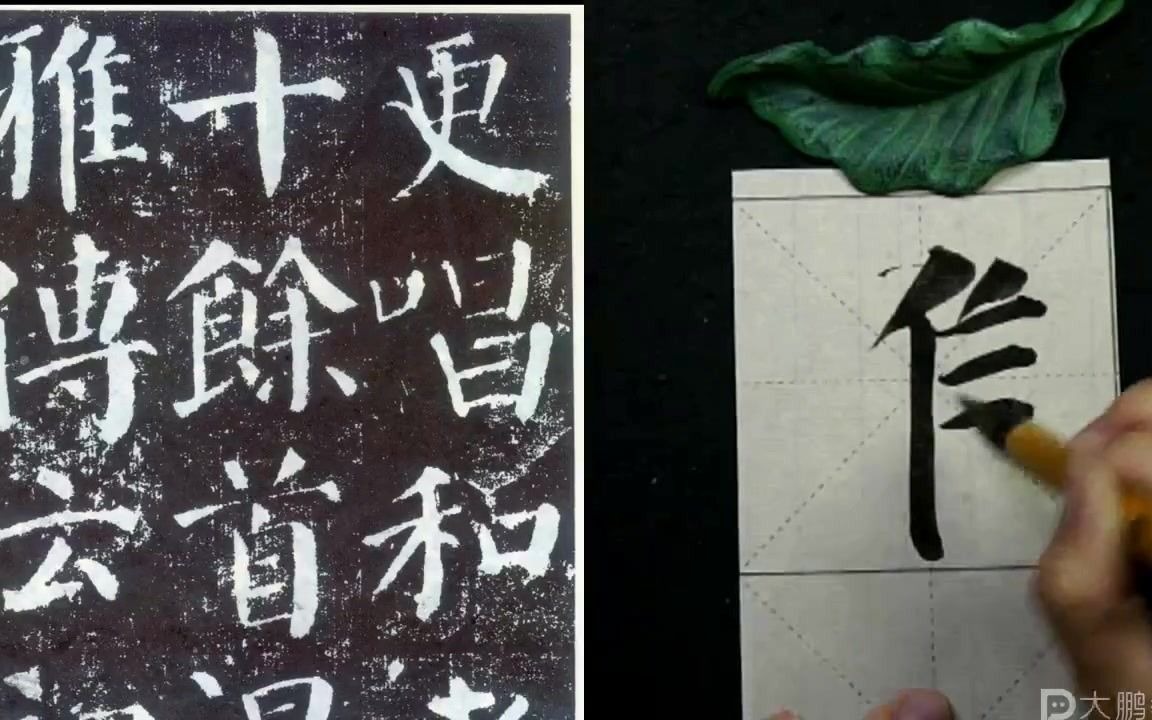 更唱和
十餘首
雅傳云
大鹏